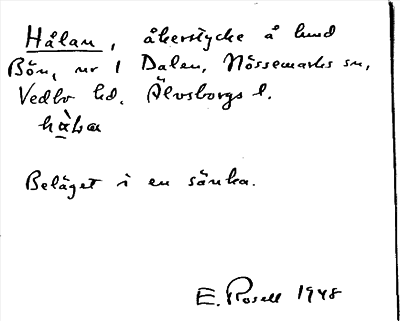 Hålan, åkerstycke å hmd
Bön, nr 1 Dalen, Nössemarks sn,
Vedbo hd. Älvsborgs l.
Beläget i en sänka.
E. Rosell 1948